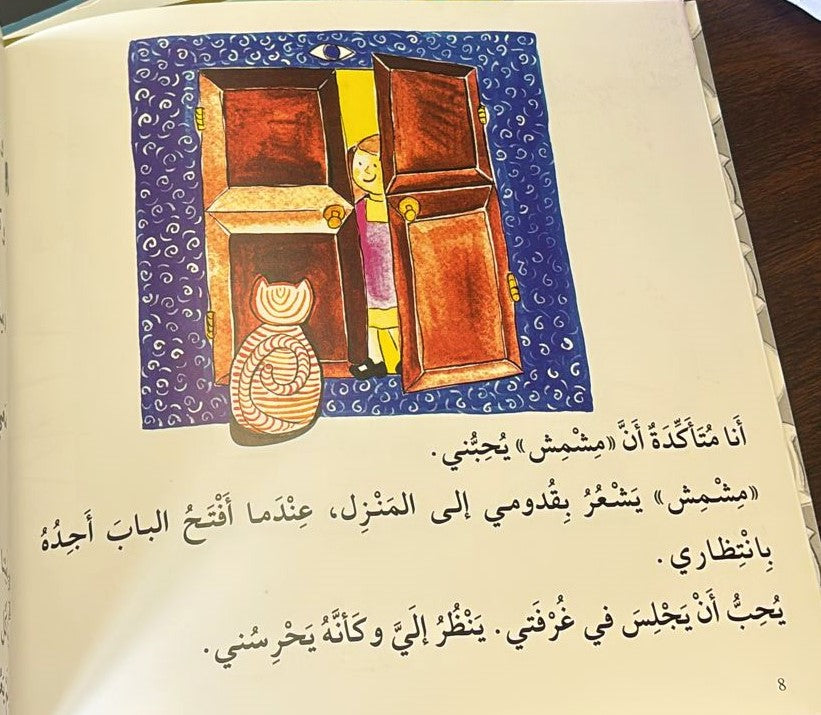 أَنا مُتَأَكِّدَةٌ أَنَّ «مِشْمِش» يُحِبُّني.
«مِشْمِش» يَشْعُرُ بِقُدومي إلى المَنْزِل، عِنْدَما أَفْتَحُ البابَ أَجِدُهُ
بِانْتِظاري.
يُحِبُّ أَنْ يَجْلِسَ في غُرْفَتي. يَنْظُرُ إلَيَّ وكَأنَّهُ يَحْرِسُني.
8